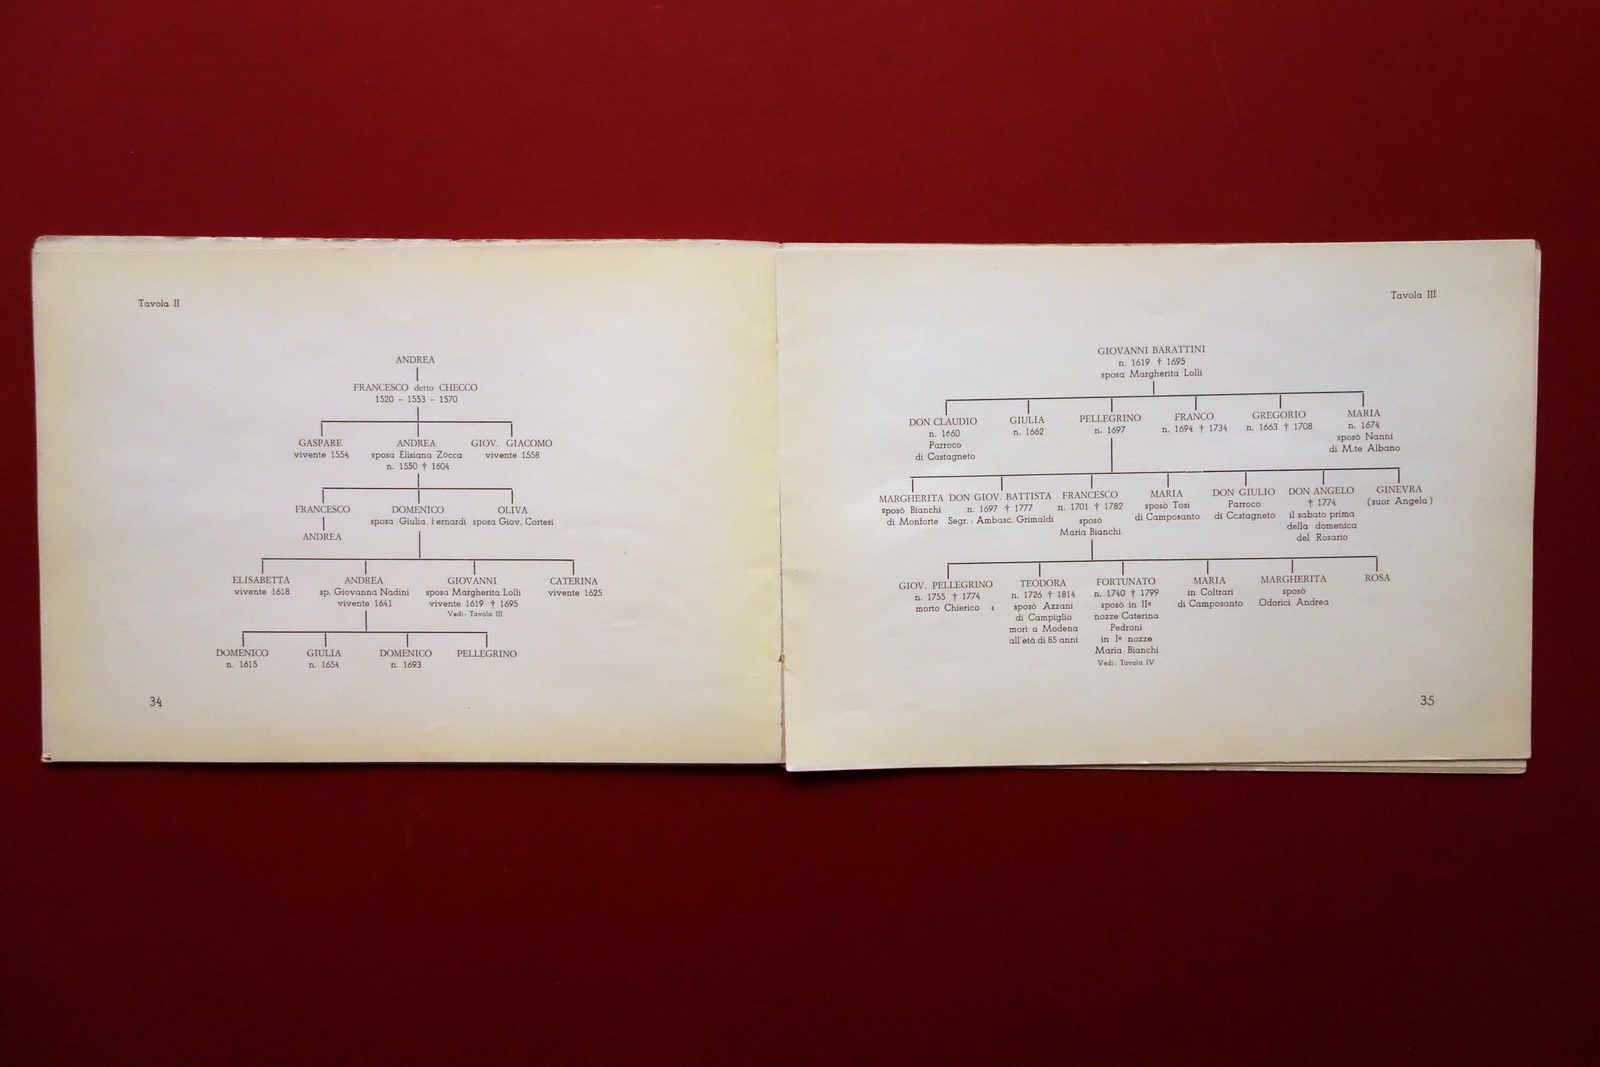 Tavola II
ANDREA
FRANCESCO detto CHECCO
1520 - 1553 - 1570
GASPARE
vivente 1554
ANDREA
sposa Elisiana Zocca
n. 1550 † 1604
GIOV. GIACOMO
vivente 1558
FRANCESCO
ANDREA
DOMENICO
sposa Giulia Bernardi
OLIVA
sposa Giov. Cortesi
ELISABETTA
vivente 1618
ANDREA
sp. Giovanna Nadini
vivente 1641
GIOVANNI
sposa Margherita Lolli
vivente 1619 † 1695
Vedi: Tavola III
CATERINA
vivente 1625
DOMENICO
n. 1615
GIULIA
n. 1654
DOMENICO
n. 1693
PELLEGRINO
34
Tavola III
GIOVANNI BARATTINI
n. 1619 † 1695
sposa Margherita Lolli
DON CLAUDIO
n. 1660
Parroco
di Castagneto
GIULIA
n. 1662
PELLEGRINO
n. 1697
FRANCO
n. 1694 † 1734
GREGORIO
n. 1663 † 1708
MARIA
n. 1674
sposò Nanni
di M.te Albano
MARGHERITA
sposò Bianchi
di Monforte
DON GIOV. BATTISTA
n. 1697 † 1777
Segr.: Ambasc. Grimaldi
FRANCESCO
n. 1701 † 1782
sposò
Maria Bianchi
MARIA
sposò Tosi
di Camposanto
DON GIULIO
Parroco
di Castagneto
DON ANGELO
† 1774
il sabato prima
della domenica
del Rosario
GINEVRA
(suor Angela)
GIOV. PELLEGRINO
n. 1755 † 1774
morto Chierico
TEODORA
n. 1726 † 1814
sposò Azzani
di Campiglio
morì a Modena
all'età di 85 anni
FORTUNATO
n. 1740 † 1799
sposò in IIe
nozze Caterina
Pedroni
in Ie nozze
Maria Bianchi
Vedi: Tavola IV
MARIA
in Coltrari
di Camposanto
MARGHERITA
sposò
Odorici Andrea
ROSA
35